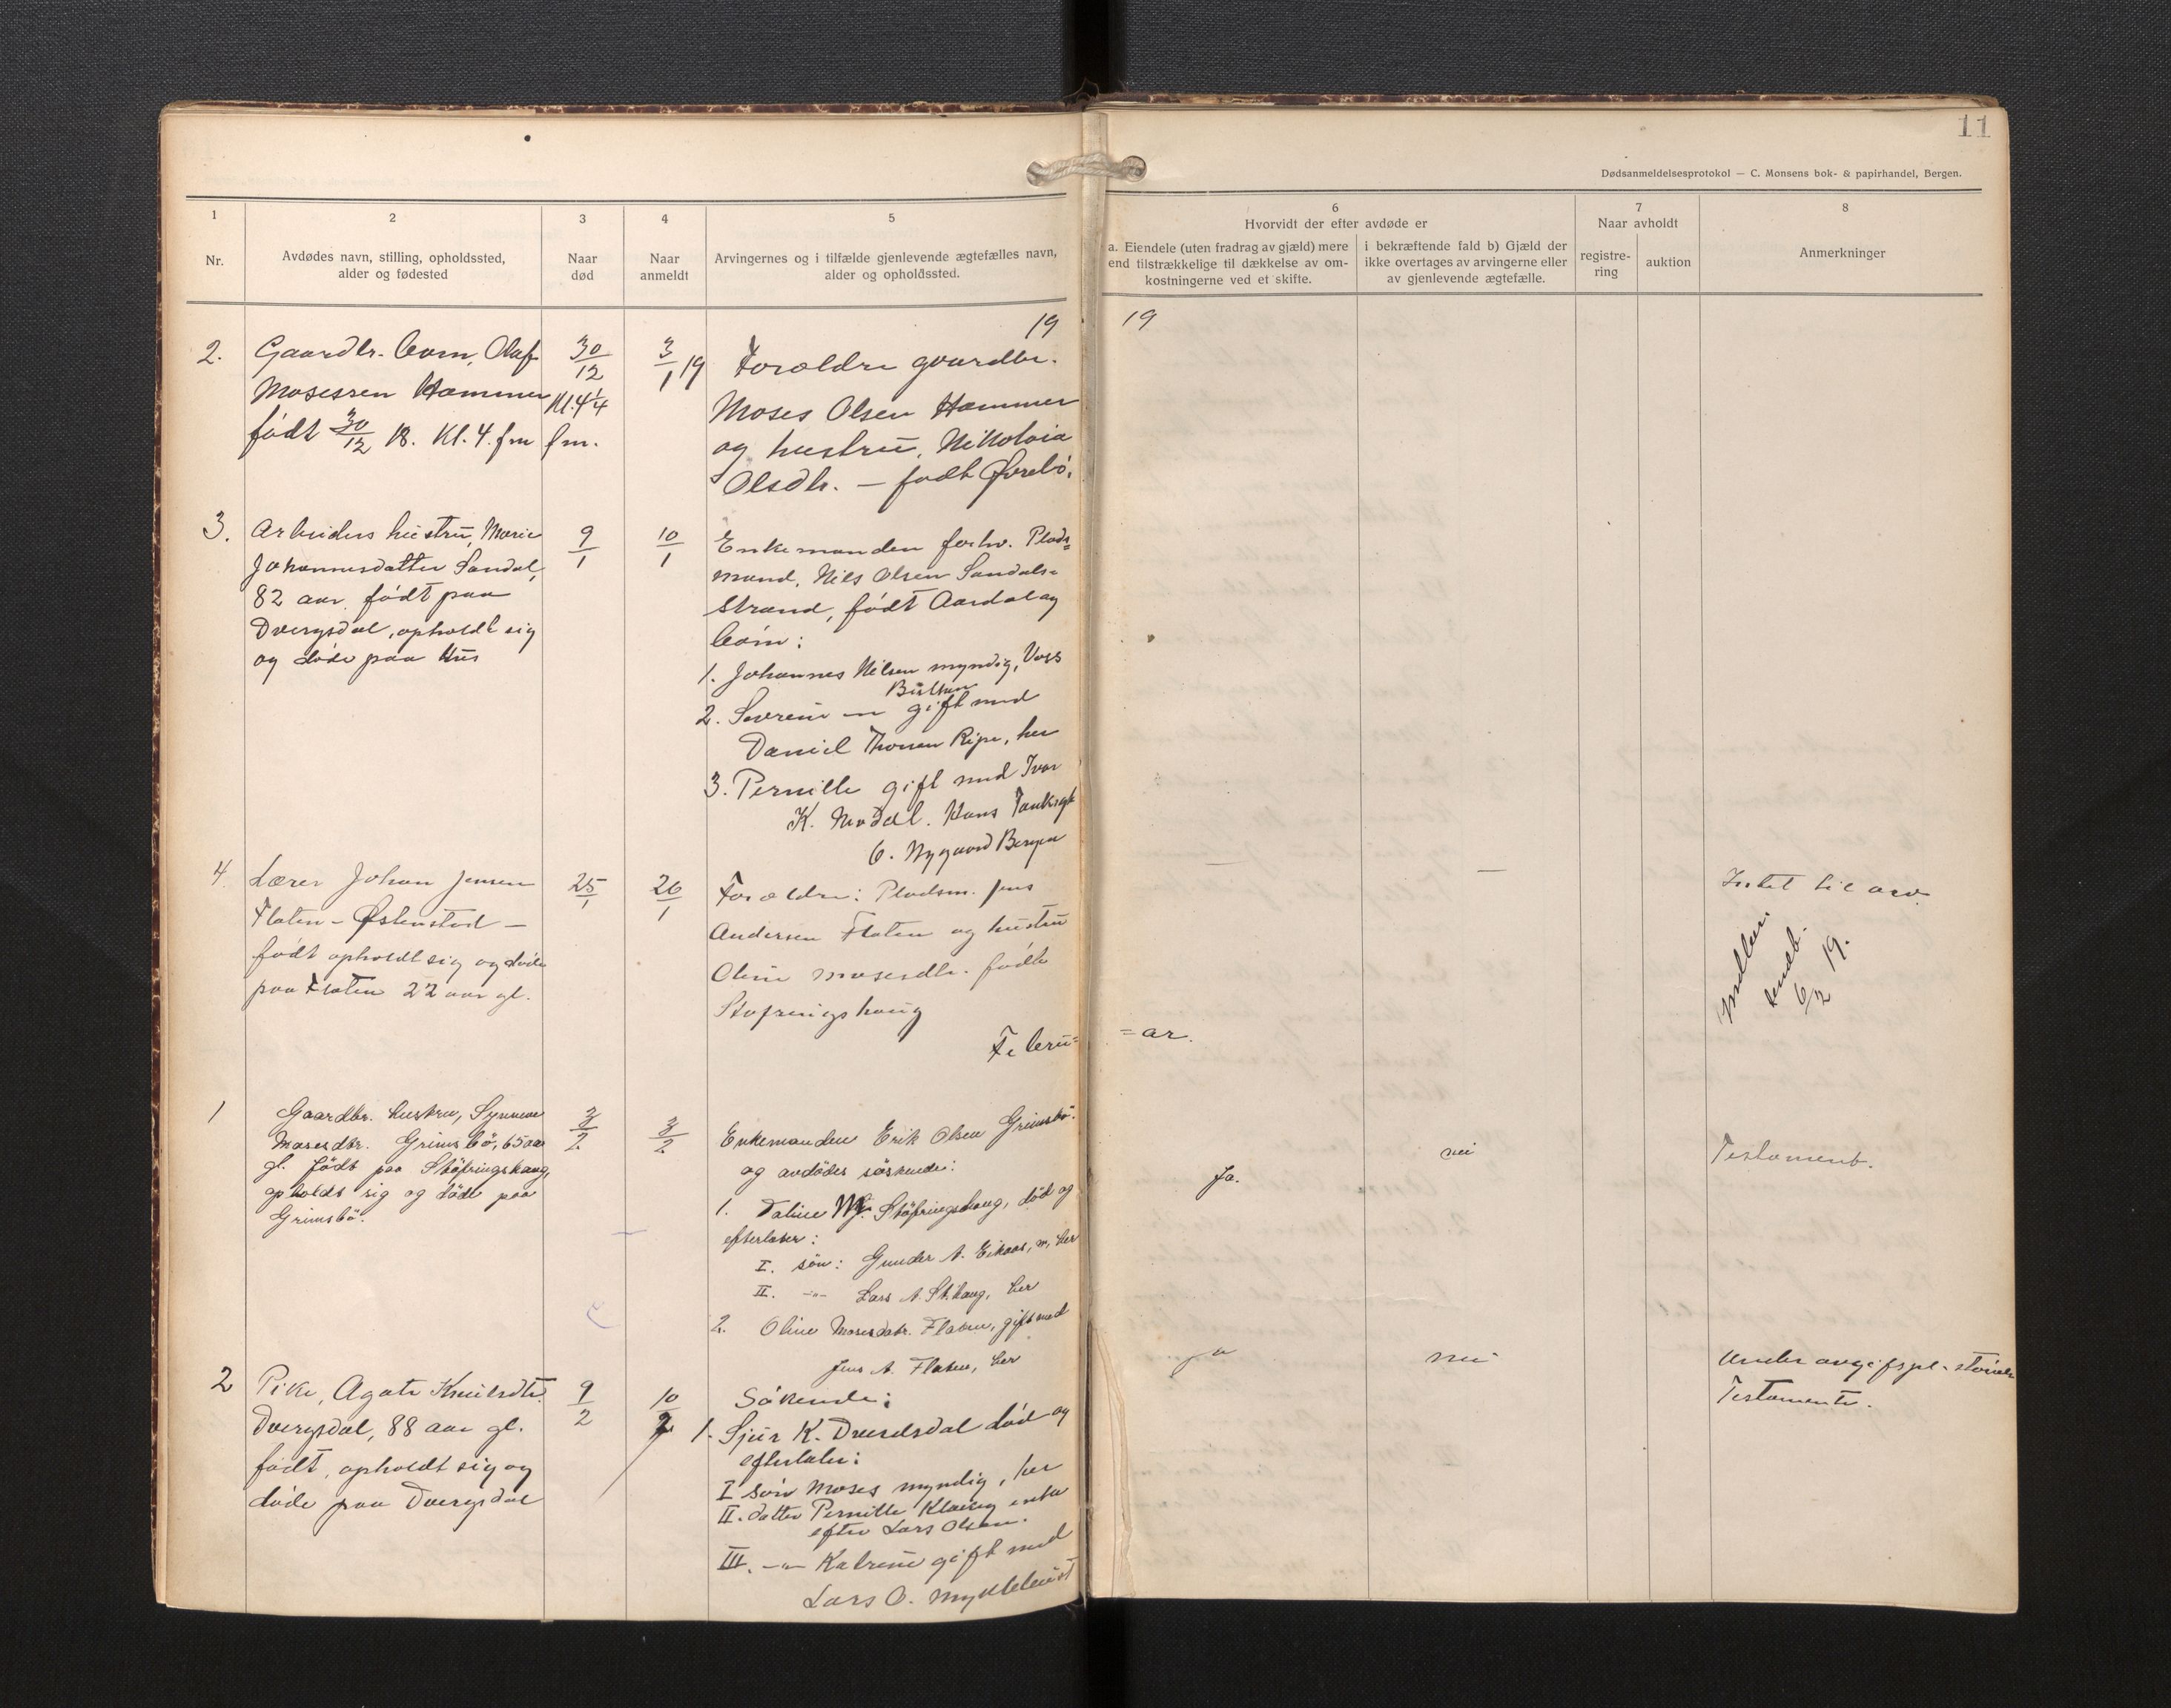 11
Dødsanmeldelsesprotokol — C. Monsens bok- & papirhandel, Bergen.
1
Nr.
2
Avdødes navn, stilling, opholdssted,
alder og fødested
3
Naar
død
4
Naar
anmeldt
5
Arvingernes og i tilfælde gjenlevende ægtefælles navn,
alder og opholdssted.
6
Hvorvidt der efter avdøde er
a. Eiendele (uten fradrag av gjæld) mere
end tilstrækkelige til dækkelse av om-
kostningerne ved et skifte.
i bekræftende fald b) Gjæld der
ikke overtages av arvingerne eller
av gjenlevende ægtefælle.
7
Naar avholdt
registre-
ring
auktion
8
Anmerkninger
19
19
2.
Gaardbr. barn, Olaf
Mosessen Hammer
født 30/12 18. Kl. 4. fm
30/12
Kl. 4 1/4
fm.
3/1 19
Forældre gaardbr.
Moses Olsen Hammer
og hustru, Nikolaia
Olsdtr. — født Øvrebö.
3.
Arbeiders hustru, Marie
Johannesdatter Sandal,
82 aar, født paa
Dvergsdal, opholdt sig
og døde paa Hus
9/1
10/1
Enkemanden forhv. Plads=
mand, Nils Olsen Sandals=
strand, født Aardal og
børn:
1. Johannes Nilsen myndig, Voss
2. Severine — gift med
Daniel Thorsen Ripe, her
3. Pernille gift med Ivar
K. Mødal. Hans Tanksgt
6. Nygaard Bergen
4.
Lærer Johan Jensen
Flaten - Østenstad —
født opholdt sig og døde
paa Flaten 22 aar gl.
25/1
26/1
Forældre: Pladsm. Jens
Andersen Flaten og hustru
Oline Mosesdtr. født
Støfringshaug
—
—
Intet til arv.
6/2 19.
Febru=
=ar.
1
Gaardbr. hustru, Synneve
Mosesdtr. Grimsbö, 65 aar
gl. födt paa Stöfringshaug,
opholdt sig og döde paa
Grimsbö.
3/2
3/2
Enkemanden Erik Olsen Grimsbö.
og avdödes söskende:
1. Taline M. Stöfringshaug, död og
efterlater:
I. sön: Gunder A. Eikaas, m, her
II. -"- Lars A. St.haug, her
2. Oline Mosesdatr. Flaten, gift med
Jens A. Flaten, her
Ja.
nei
Testament.
2
Pike, Agate Knutsdtr.
Dvergsdal, 88 aar gl.
født, opholdt sig og
døde paa Dvergsdal
9/2
10/2
Søkende:
1. Sjur K. Dvergsdal død og
efterlater:
I søn Moses myndig, her
II. datter Pernille Klakeg enke
efter Lars Olsen.
III. -"- Katrine gift med
Lars O. Myklebust
ja
nei
Under avgiftspl. større
Testamente.